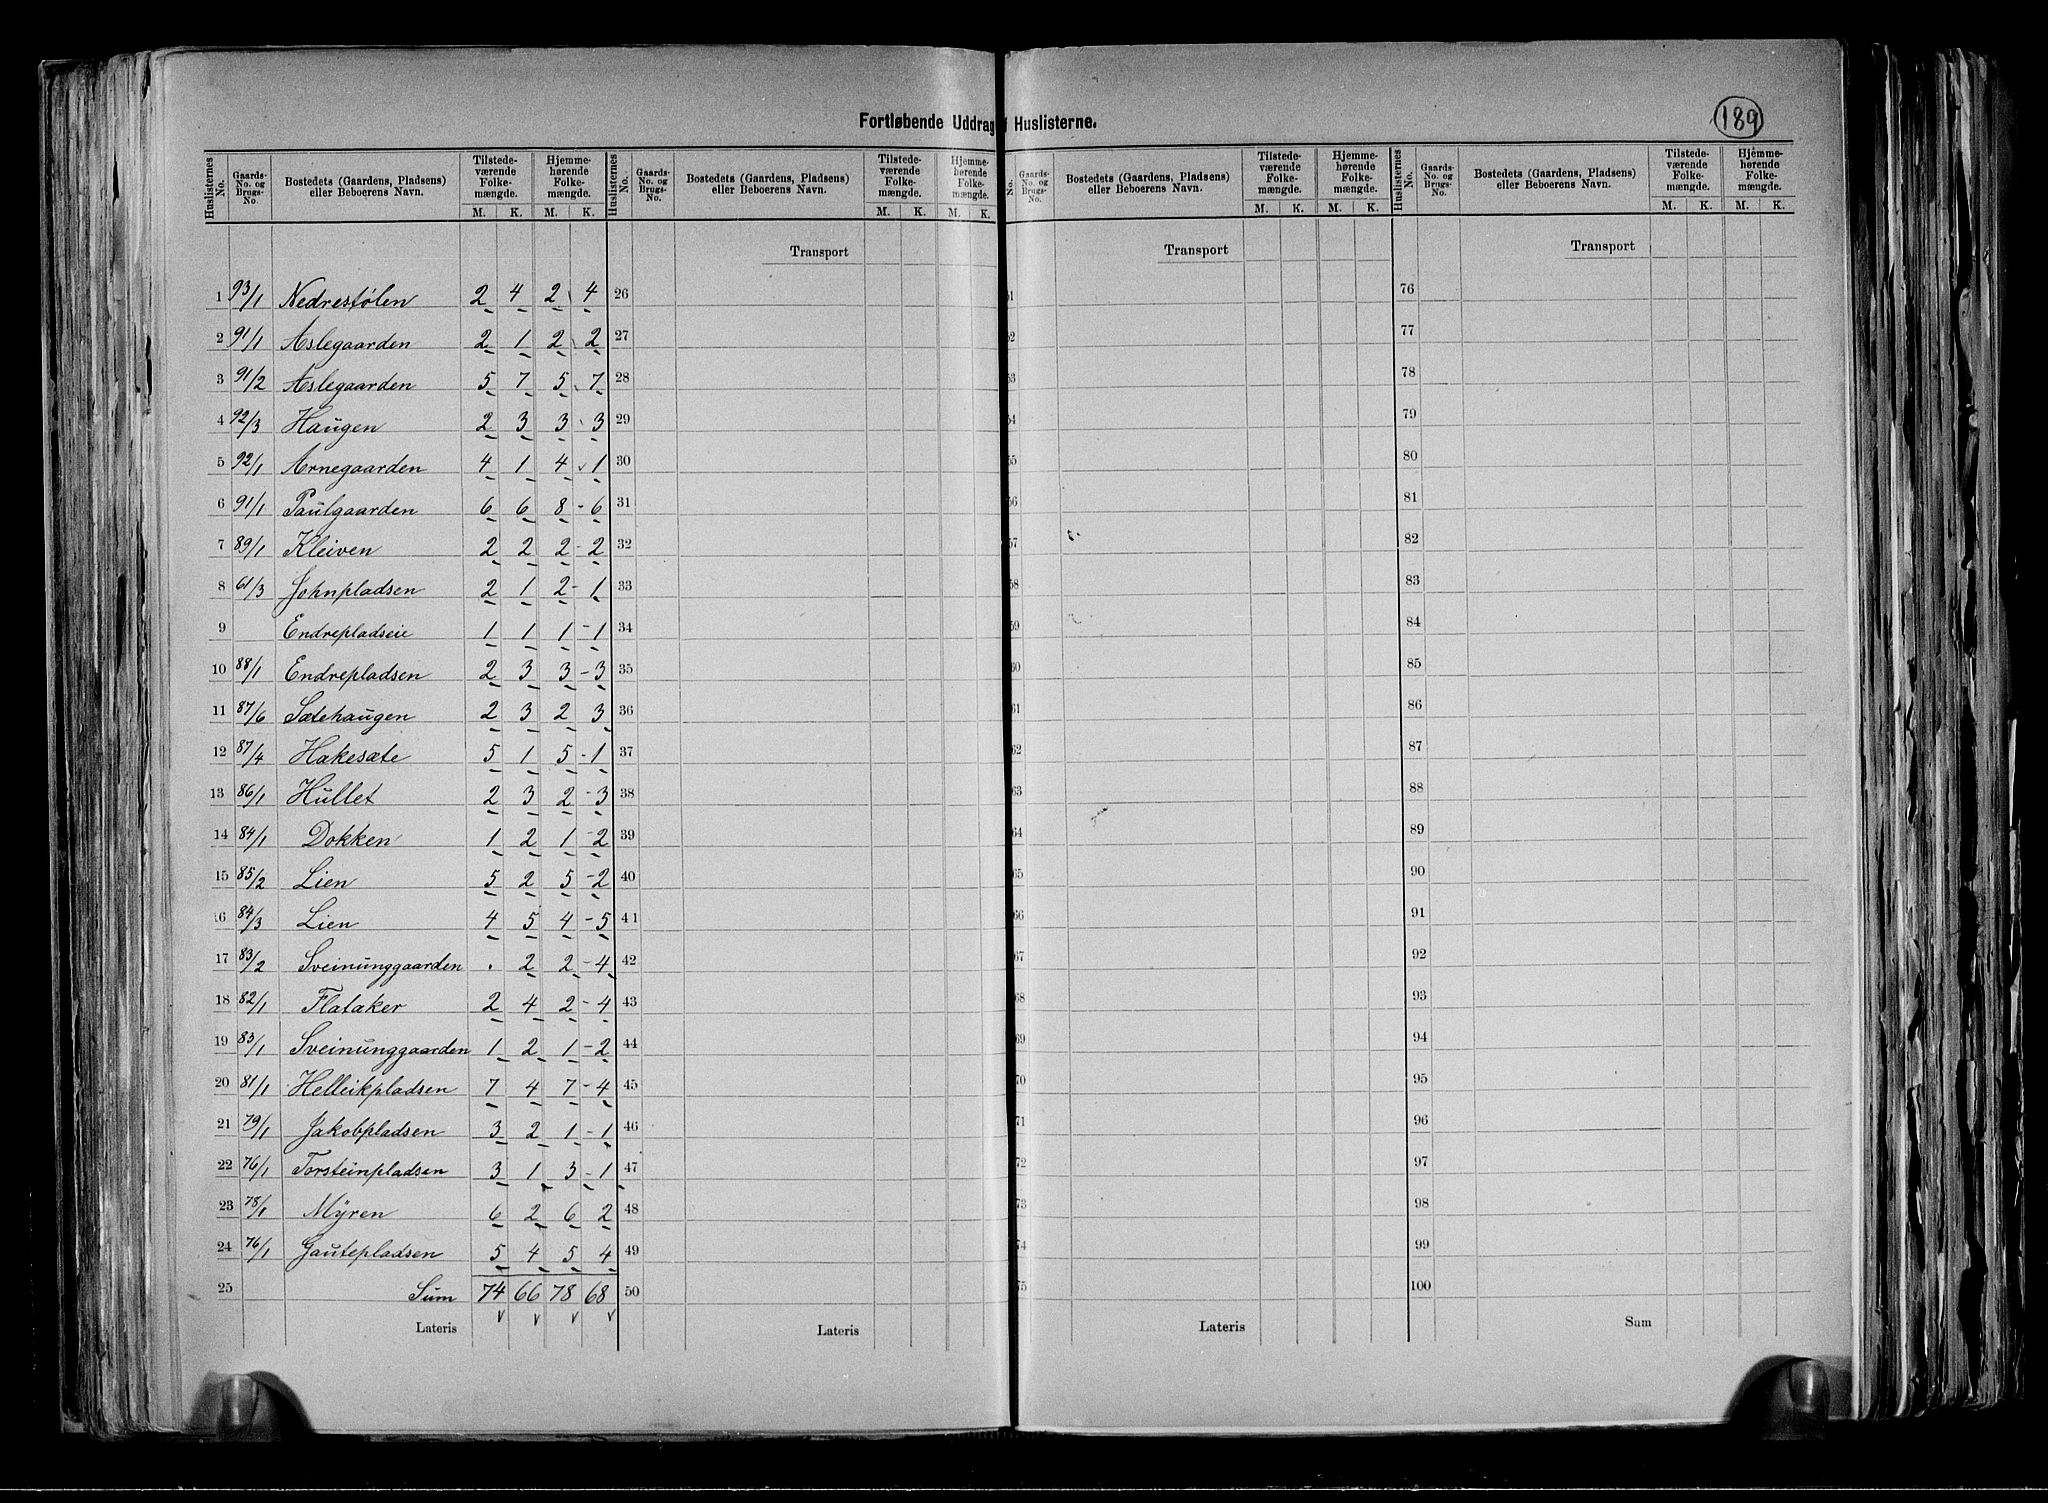 Fortløbende Uddrag Huslisterne.
189
Huslisternes No. | Gaards-No. og Brugs-No | Bostedets (Gaardens, Pladsens) eller Beboerens Navn. | Tilstedeværende Folkemængde. M. K. | Hjemmehørende Folkemængde. M. K.
1 93/1 Nedrestølen 2 4 2 4
2 91/1 Aslegaarden 2 1 2 2
3 91/2 Aslegaarden 5 7 5 7
4 92/3 Haugen 2 3 3 3
5 92/1 Arnegaarden 4 1 4 1
6 91/1 Paulgaarden 6 6 8 - 6
7 89/1 Kleiven 2 2 2 - 2
8 61/3 Johnpladsen 2 1 2 - 1
9 Endrepladseie 1 1 1 - 1
10 88/1 Endrepladsen 2 3 3 - 3
11 87/6 Sætehaugen 2 3 2 3
12 87/4 Hakesæte 5 1 5 - 1
13 86/1 Hullet 2 3 2 - 3
14 84/1 Dokken 1 2 1 - 2
15 85/2 Lien 5 2 5 - 2
16 84/3 Lien 4 5 4 - 5
17 83/2 Sveinunggaarden . 2 2 - 4
18 82/1 Flataker 2 4 2 - 4
19 83/1 Sveinunggaarden 1 2 1 - 2
20 81/1 Helleikpladsen 7 4 7 - 4
21 79/1 Jakobpladsen 3 2 1 - 1
22 76/1 Torsteinpladsen 3 1 3 - 1
23 78/1 Myren 6 2 6 2
24 76/1 Gautepladsen 5 4 5 4
25 Sum 74 66 78 68
Lateris
Huslisternes No. | Gaards-No. og Brugs-No. | Bostedets (Gaardens, Pladsens) eller Beboerens Navn. | Tilstedeværende Folkemængde. M. K. | Hjemmehørende Folkemængde. M. K.
Transport
26
27
28
29
30
31
32
33
34
35
36
37
38
39
40
41
42
43
44
45
46
47
48
49
50
Lateris
No. | Gaards-No. og Brugs-No. | Bostedets (Gaardens, Pladsens) eller Beboerens Navn. | Tilstedeværende Folkemængde. M. K. | Hjemmehørende Folkemængde. M. K.
Transport
Lateris
Huslisternes No. | Gaards-No. og Brugs-No. | Bostedets (Gaardens, Pladsens) eller Beboerens Navn. | Tilstedeværende Folkemængde. M. K. | Hjemmehørende Folkemængde. M. K.
Transport
76
77
78
79
80
81
82
83
84
85
86
87
88
89
90
91
92
93
94
95
96
97
98
99
100
Sum